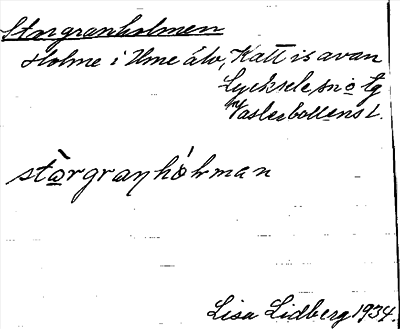 Storgranholmen
Holme i Ume älv, Kattisavan
Lycksele sn o Lg
Västerbottens l.
stòrgranhólman
Lisa Lidberg 1934.